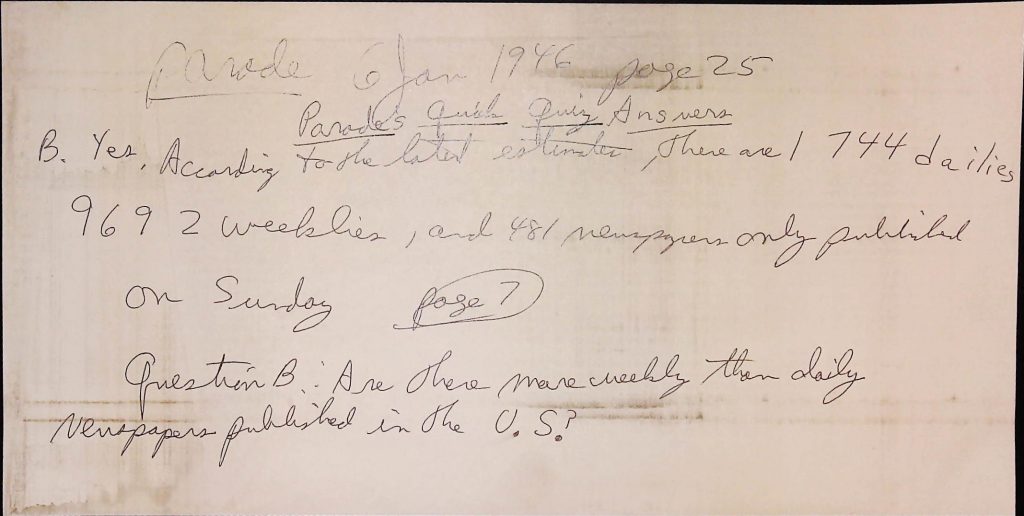 Parade 6 Jan 1946 page 25
Parade's Quick Quiz Answers
B. Yes. According to the latest estimates, there are 1 744 dailies
969 2 weeklies, and 481 newspapers only published
on Sunday page 7
Question B.: Are there more weekly than daily
newspapers published in the U.S.?